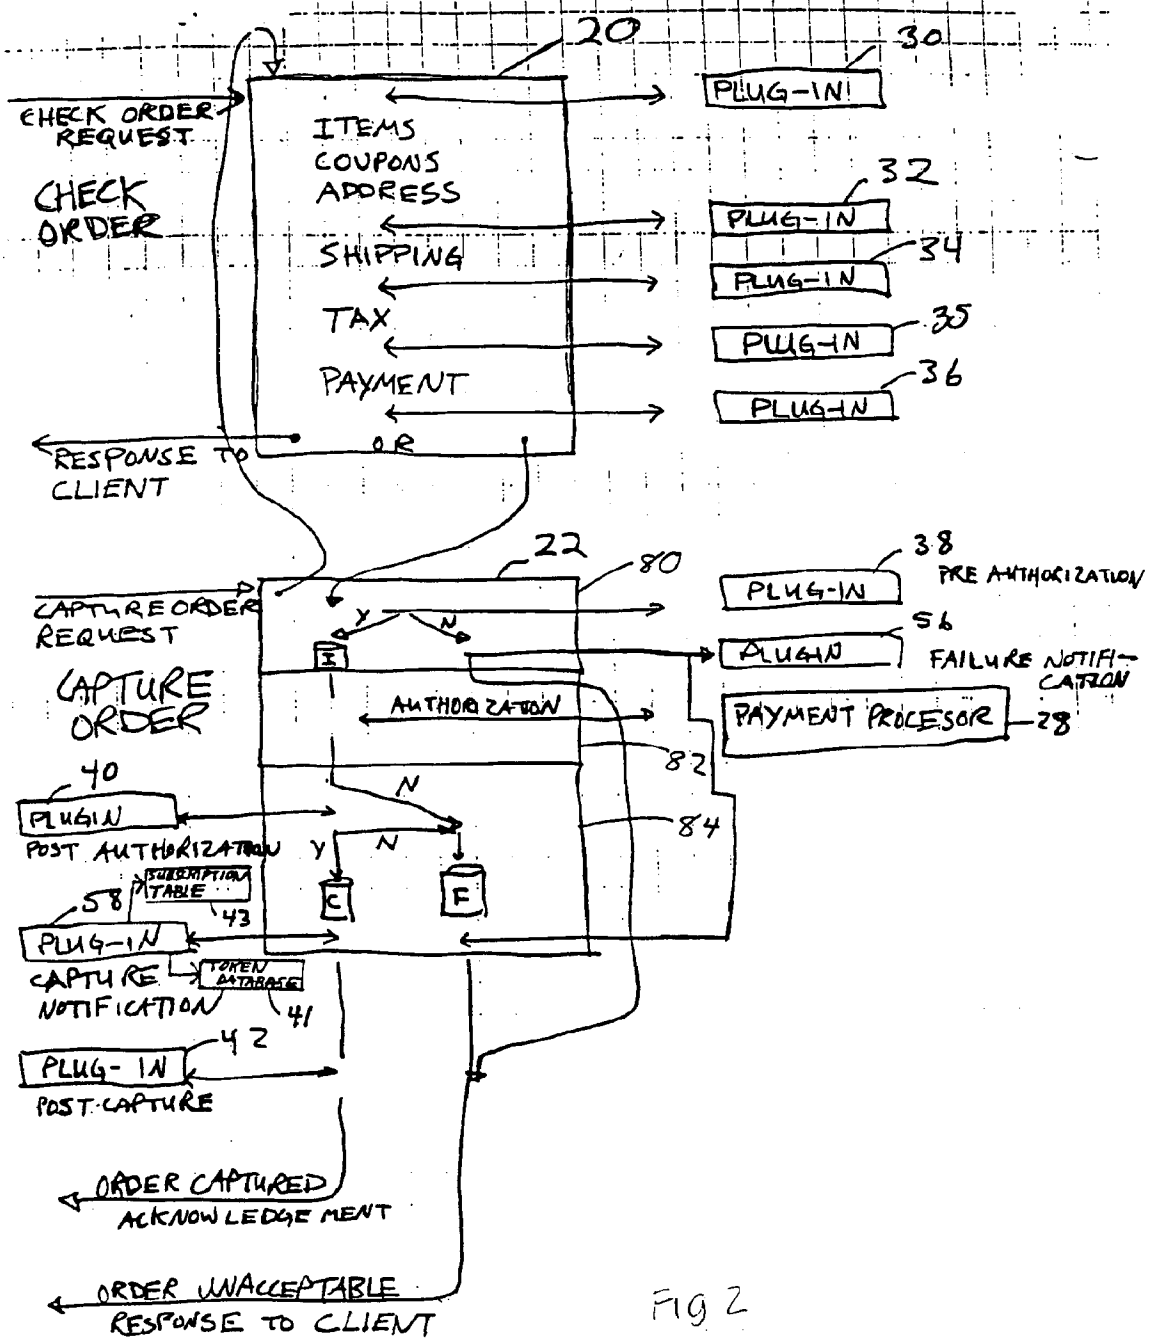 20
30
PLUG-IN
CHECK ORDER
REQUEST
ITEMS
COUPONS
ADDRESS
CHECK
ORDER
32
PLUG-IN
SHIPPING
34
PLUG-IN
TAX
35
PLUG-IN
PAYMENT
36
PLUG-IN
OR
RESPONSE TO
CLIENT
22
80
38
PLUG-IN
PRE AUTHORIZATION
CAPTURE ORDER
REQUEST
Y
N
I
56
PLUGIN
FAILURE NOTIFI-
CATION
CAPTURE
ORDER
AUTHORIZATION
PAYMENT PROCESOR
28
82
40
PLUGIN
POST AUTHORIZATION
N
Y
N
84
SUBSCRIPTION
TABLE
43
58
C
F
PLUG-IN
CAPTURE
NOTIFICATION
TOKEN
DATABASE
41
42
PLUG-IN
POST-CAPTURE
ORDER CAPTURED
ACKNOWLEDGEMENT
ORDER UNACCEPTABLE
RESPONSE TO CLIENT
Fig 2